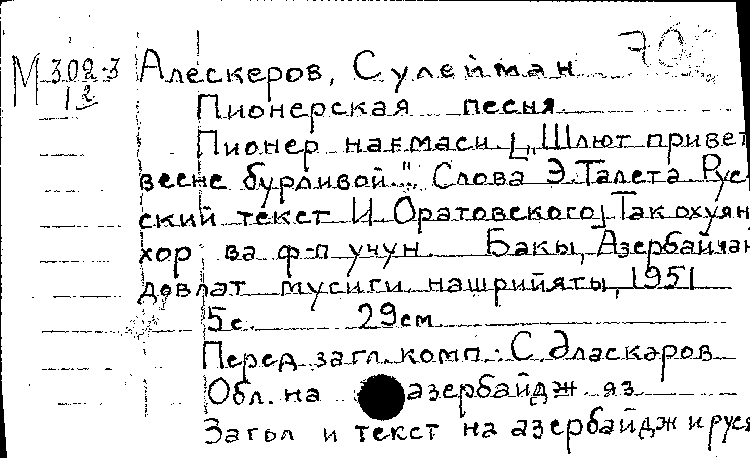 М 302-3 Алескеров, Сулейман
12 Пионерская песня.
Пионер нағмаси. [„Шлют привет
весне бурливой..." Слова Э. Талета. Рус-
ский текст И. Оратовского] Так охуян
хор ва ф-п учун. Бакы, Азербайҹан
довлат мусиги нашрийяты, 1951
5с. 29см
Перед загл. комп.: С. Әласкаров
Обл. на азербайдж. яз
Загол и текст на азербайдж и руся